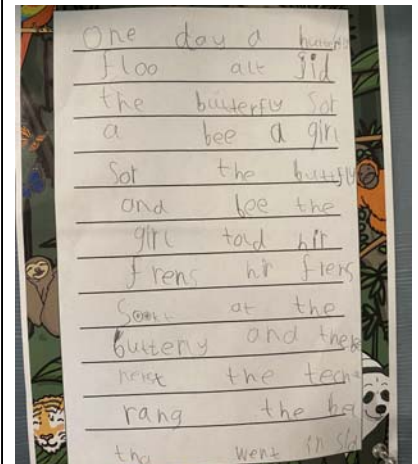 One day a butterfly
floo alt jid
the buttterfly sor
a bee a girl
sor the buttfly
and bee the
girl told hir
frens hir frens
at the
butterfly and the be
the tech
rang the be
tha went in sid